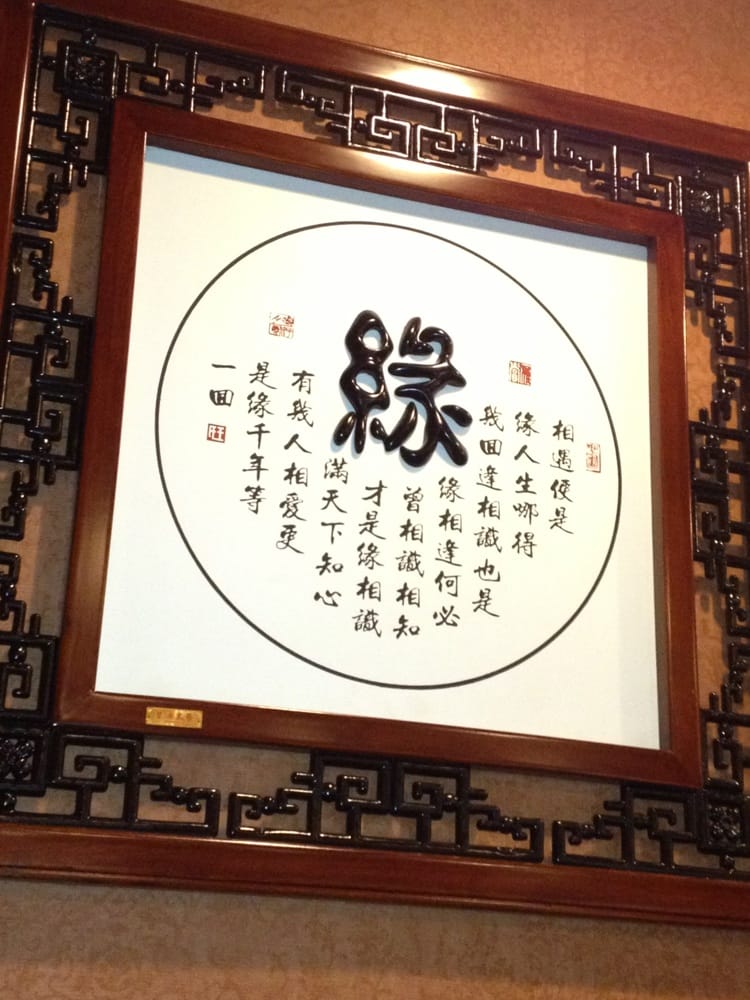 緣
相遇便是
缘人生哪得
幾回逢相識也是
缘相逢何必
曾相識相知
才是缘相識
滿天下知心
有幾人相愛更
是缘千年等
一回